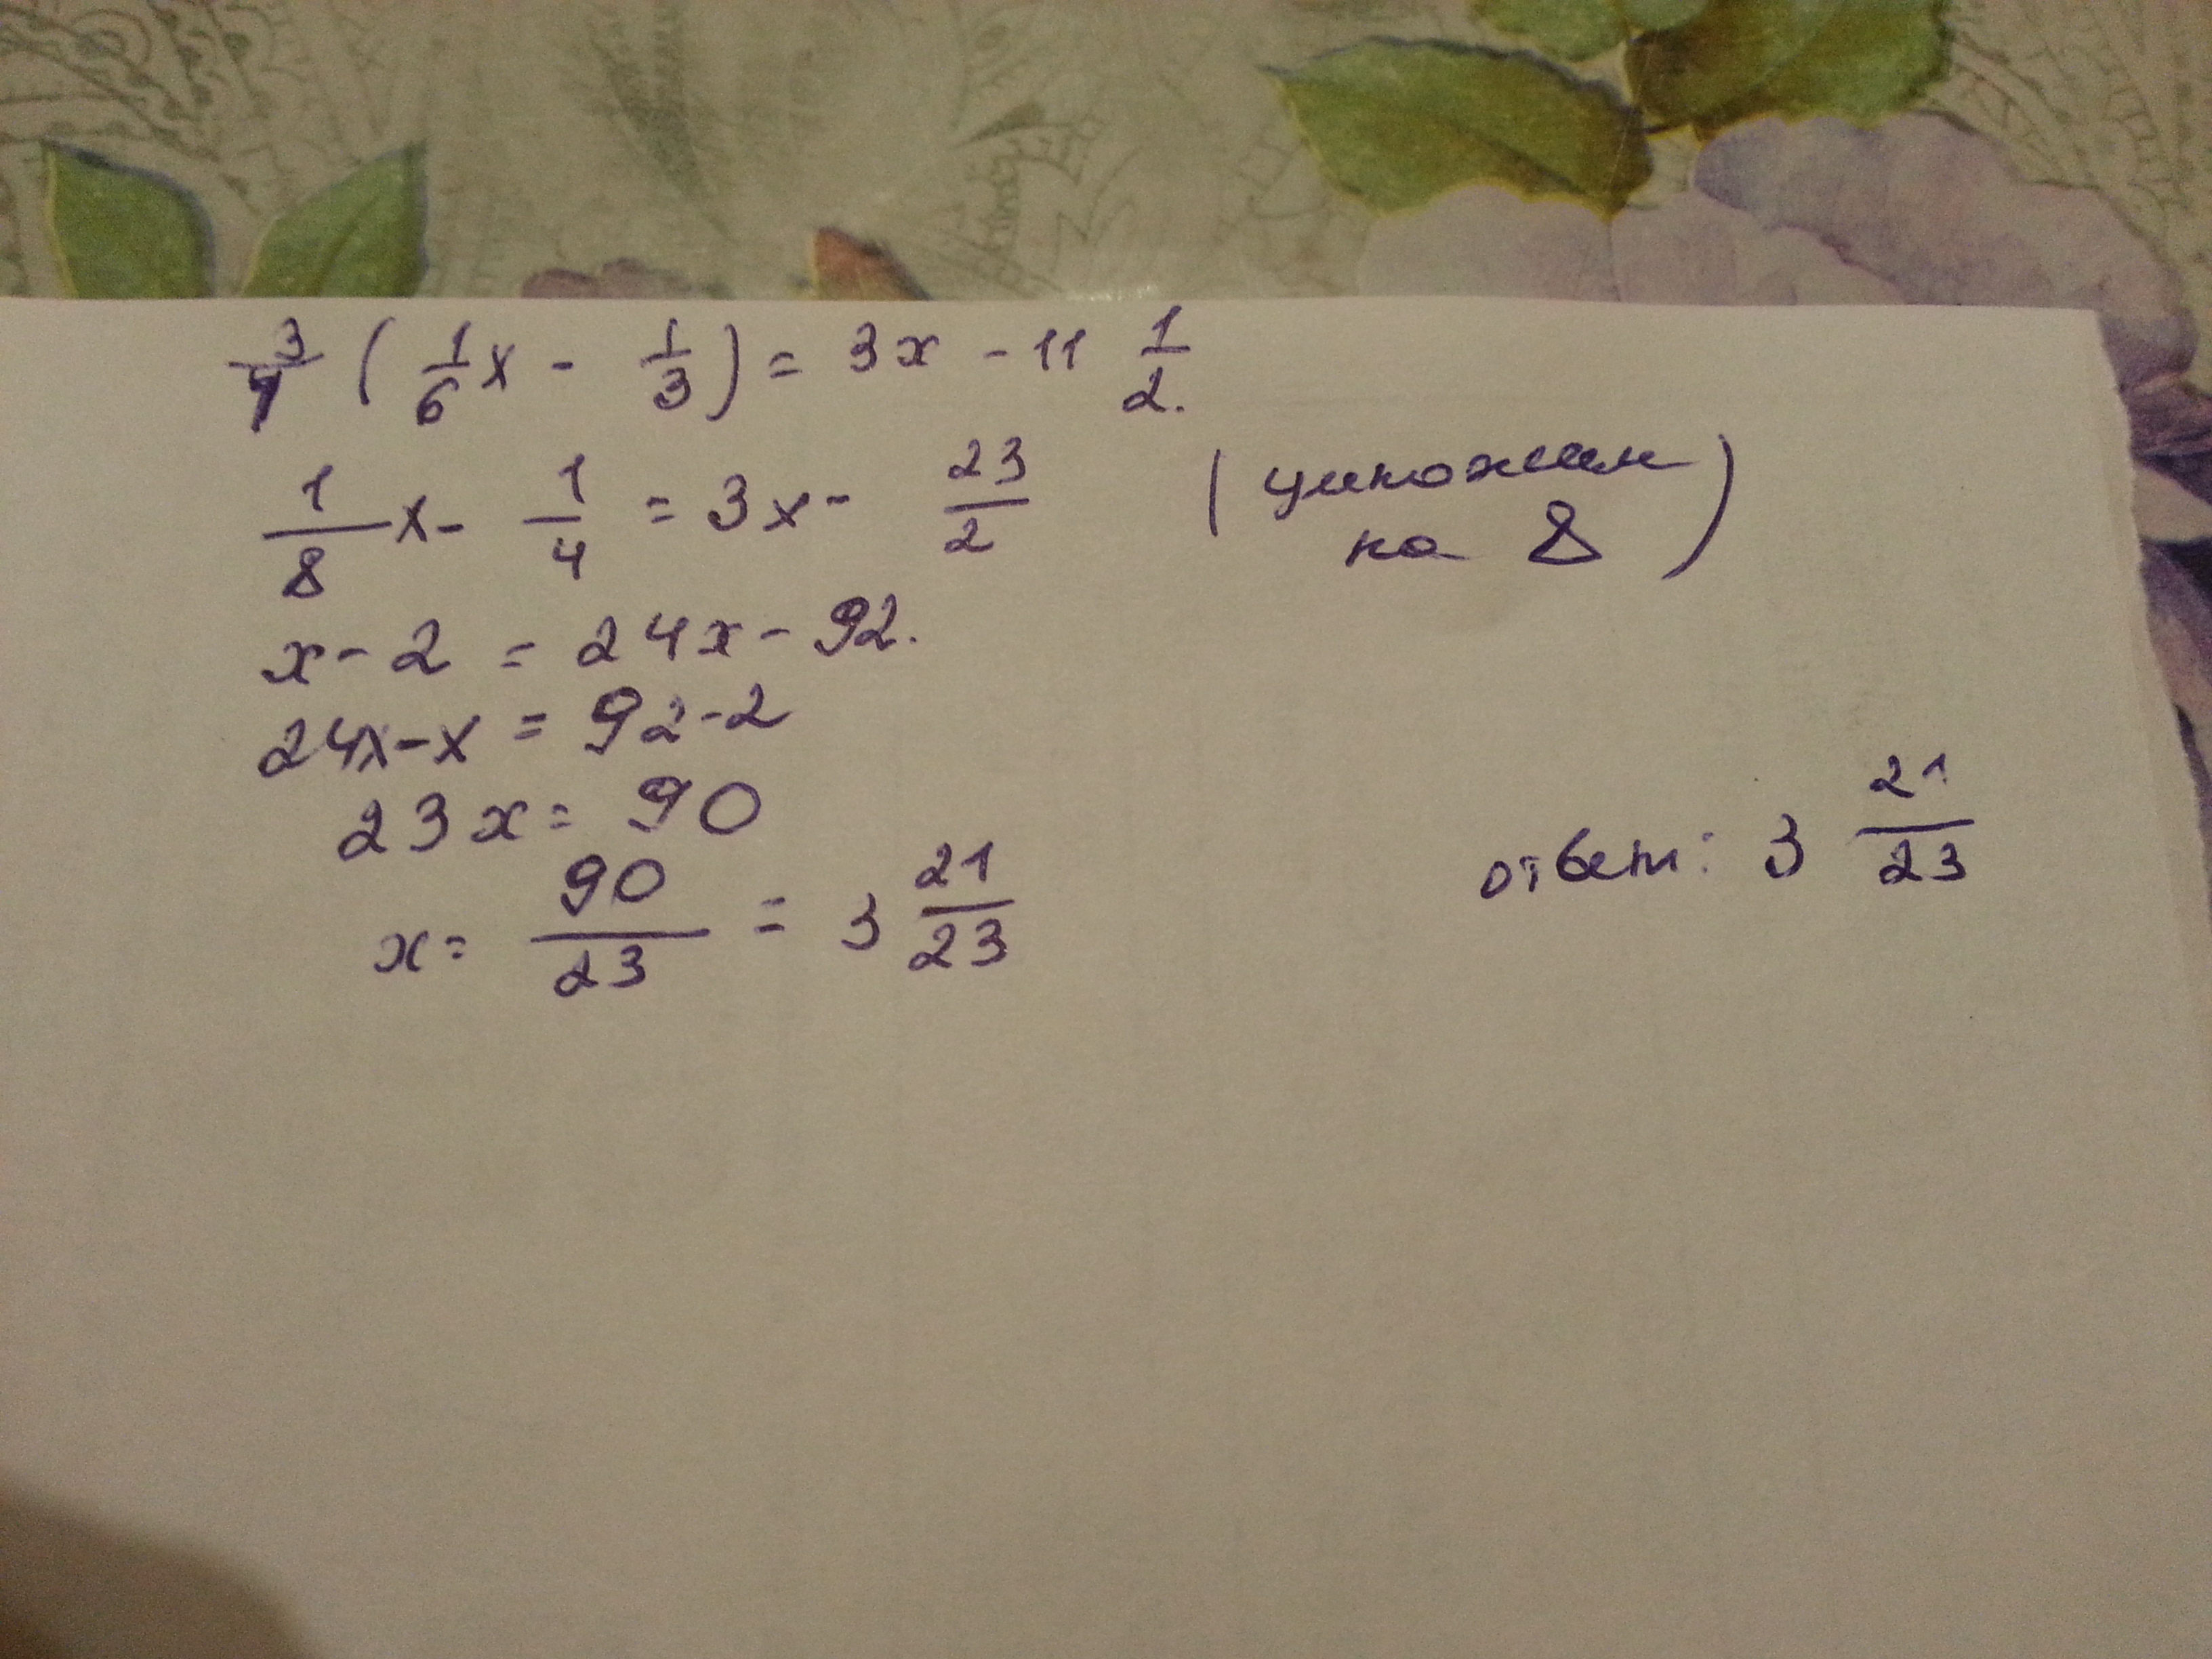 3/4 ( 1/6 x - 1/3 ) = 3x - 11 1/2.
1/8 x - 1/4 = 3x - 23/2 ( умножим
на 8 )
x - 2 = 24x - 92.
24x - x = 92 - 2
23x = 90
x = 90/23 = 3 21/23
ответ: 3 21/23